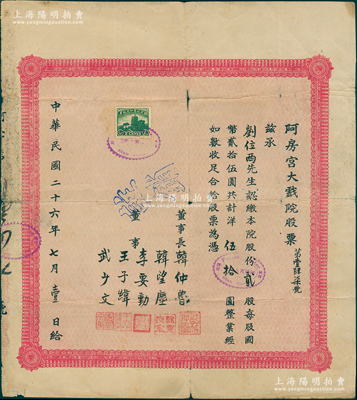 上海陽明拍賣
www.yangmingauction.com
阿房宮大戲院股票
第壹肆柒號
茲承
劉位西先生認繳本院股份貳股每股國
幣貳拾伍圓共計洋伍拾圓整業經
如數收足合給股票為憑
董事長韓仲魯
董事
韓望塵
李要勤
王子緯
武少文
中華民國二十六年七月壹日給
上海陽明拍賣
www.yangmingauction.com